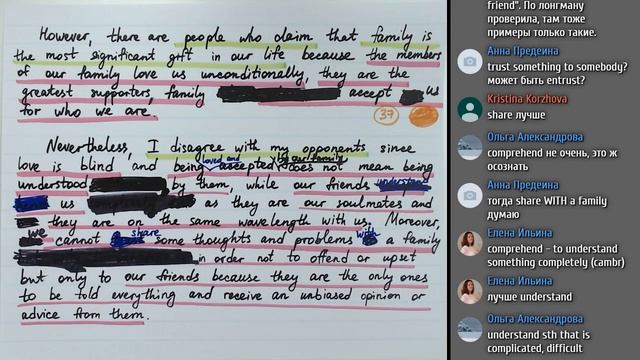 However, there are people who claim that family is
the most significant gift in our life because the members
of our family love us unconditionally, they are the
greatest supporters, family accept us
for who we are.
37
Nevertheless, I disagree with my opponents since
love is blind and being loved and accepted by our family does not mean being
understood by them, while our friends understand
us as they are our soulmates and
they are on the same wavelength with us. Moreover,
we cannot share some thoughts and problems with a family
in order not to offend or upset
but only to our friends because they are the only ones
to be told everything and receive an unbiased opinion or
advice from them.
friend". По лонгману
проверила, там тоже
примеры только такие.
Анна Предеина
trust something to somebody?
может быть entrust?
Kristina Korzhova
share лучше
Ольга Александрова
comprehend не очень, это ж
осознать
Анна Предеина
тогда share WITH a family
думаю
Елена Ильина
comprehend - to understand
something completely (cambr)
Елена Ильина
лучше understand
Ольга Александрова
understand sth that is
complicated, difficult